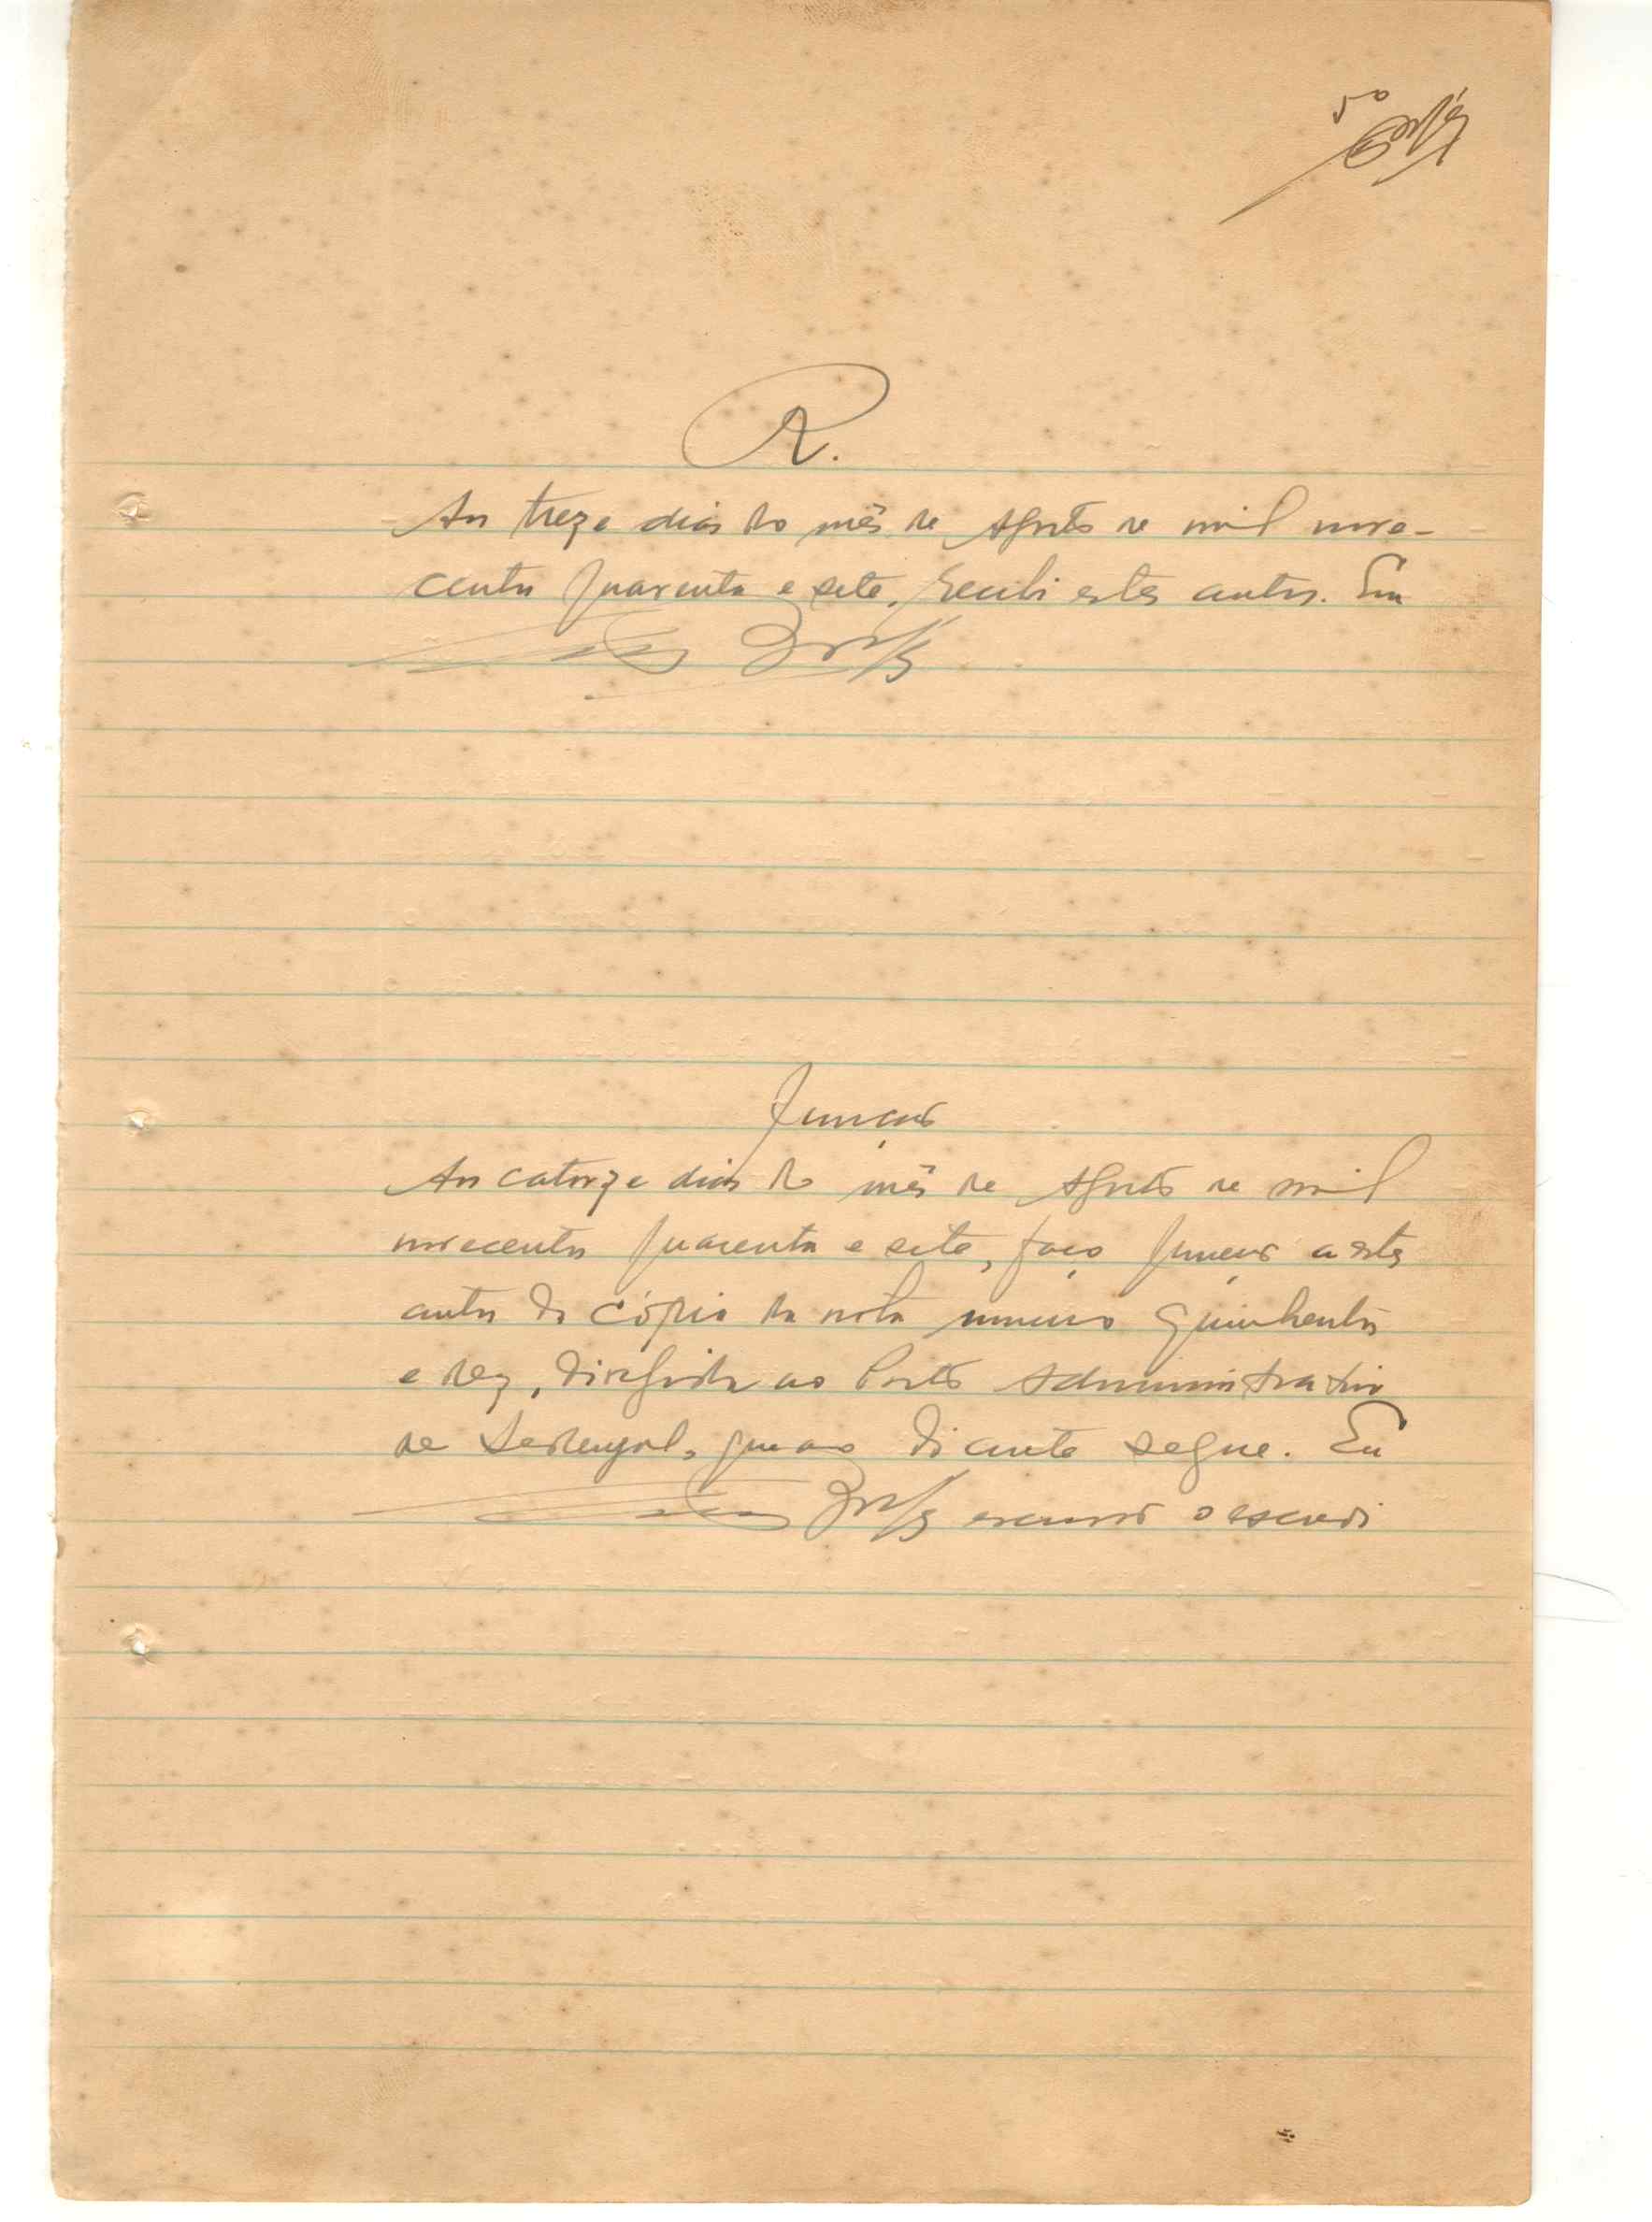 5º
R.
Aos treze dias do mês de Agosto de mil nove-
centos quarenta e sete, recebi estes autos. Eu
Junção
Aos catorze dias do mês de Agosto de mil
novecentos quarenta e sete, faço junção a estes
autos da cópia da nota número quinhentos
e dez, dirigida ao Posto Administrativo
de que ao diante segue. Eu
o escrevi